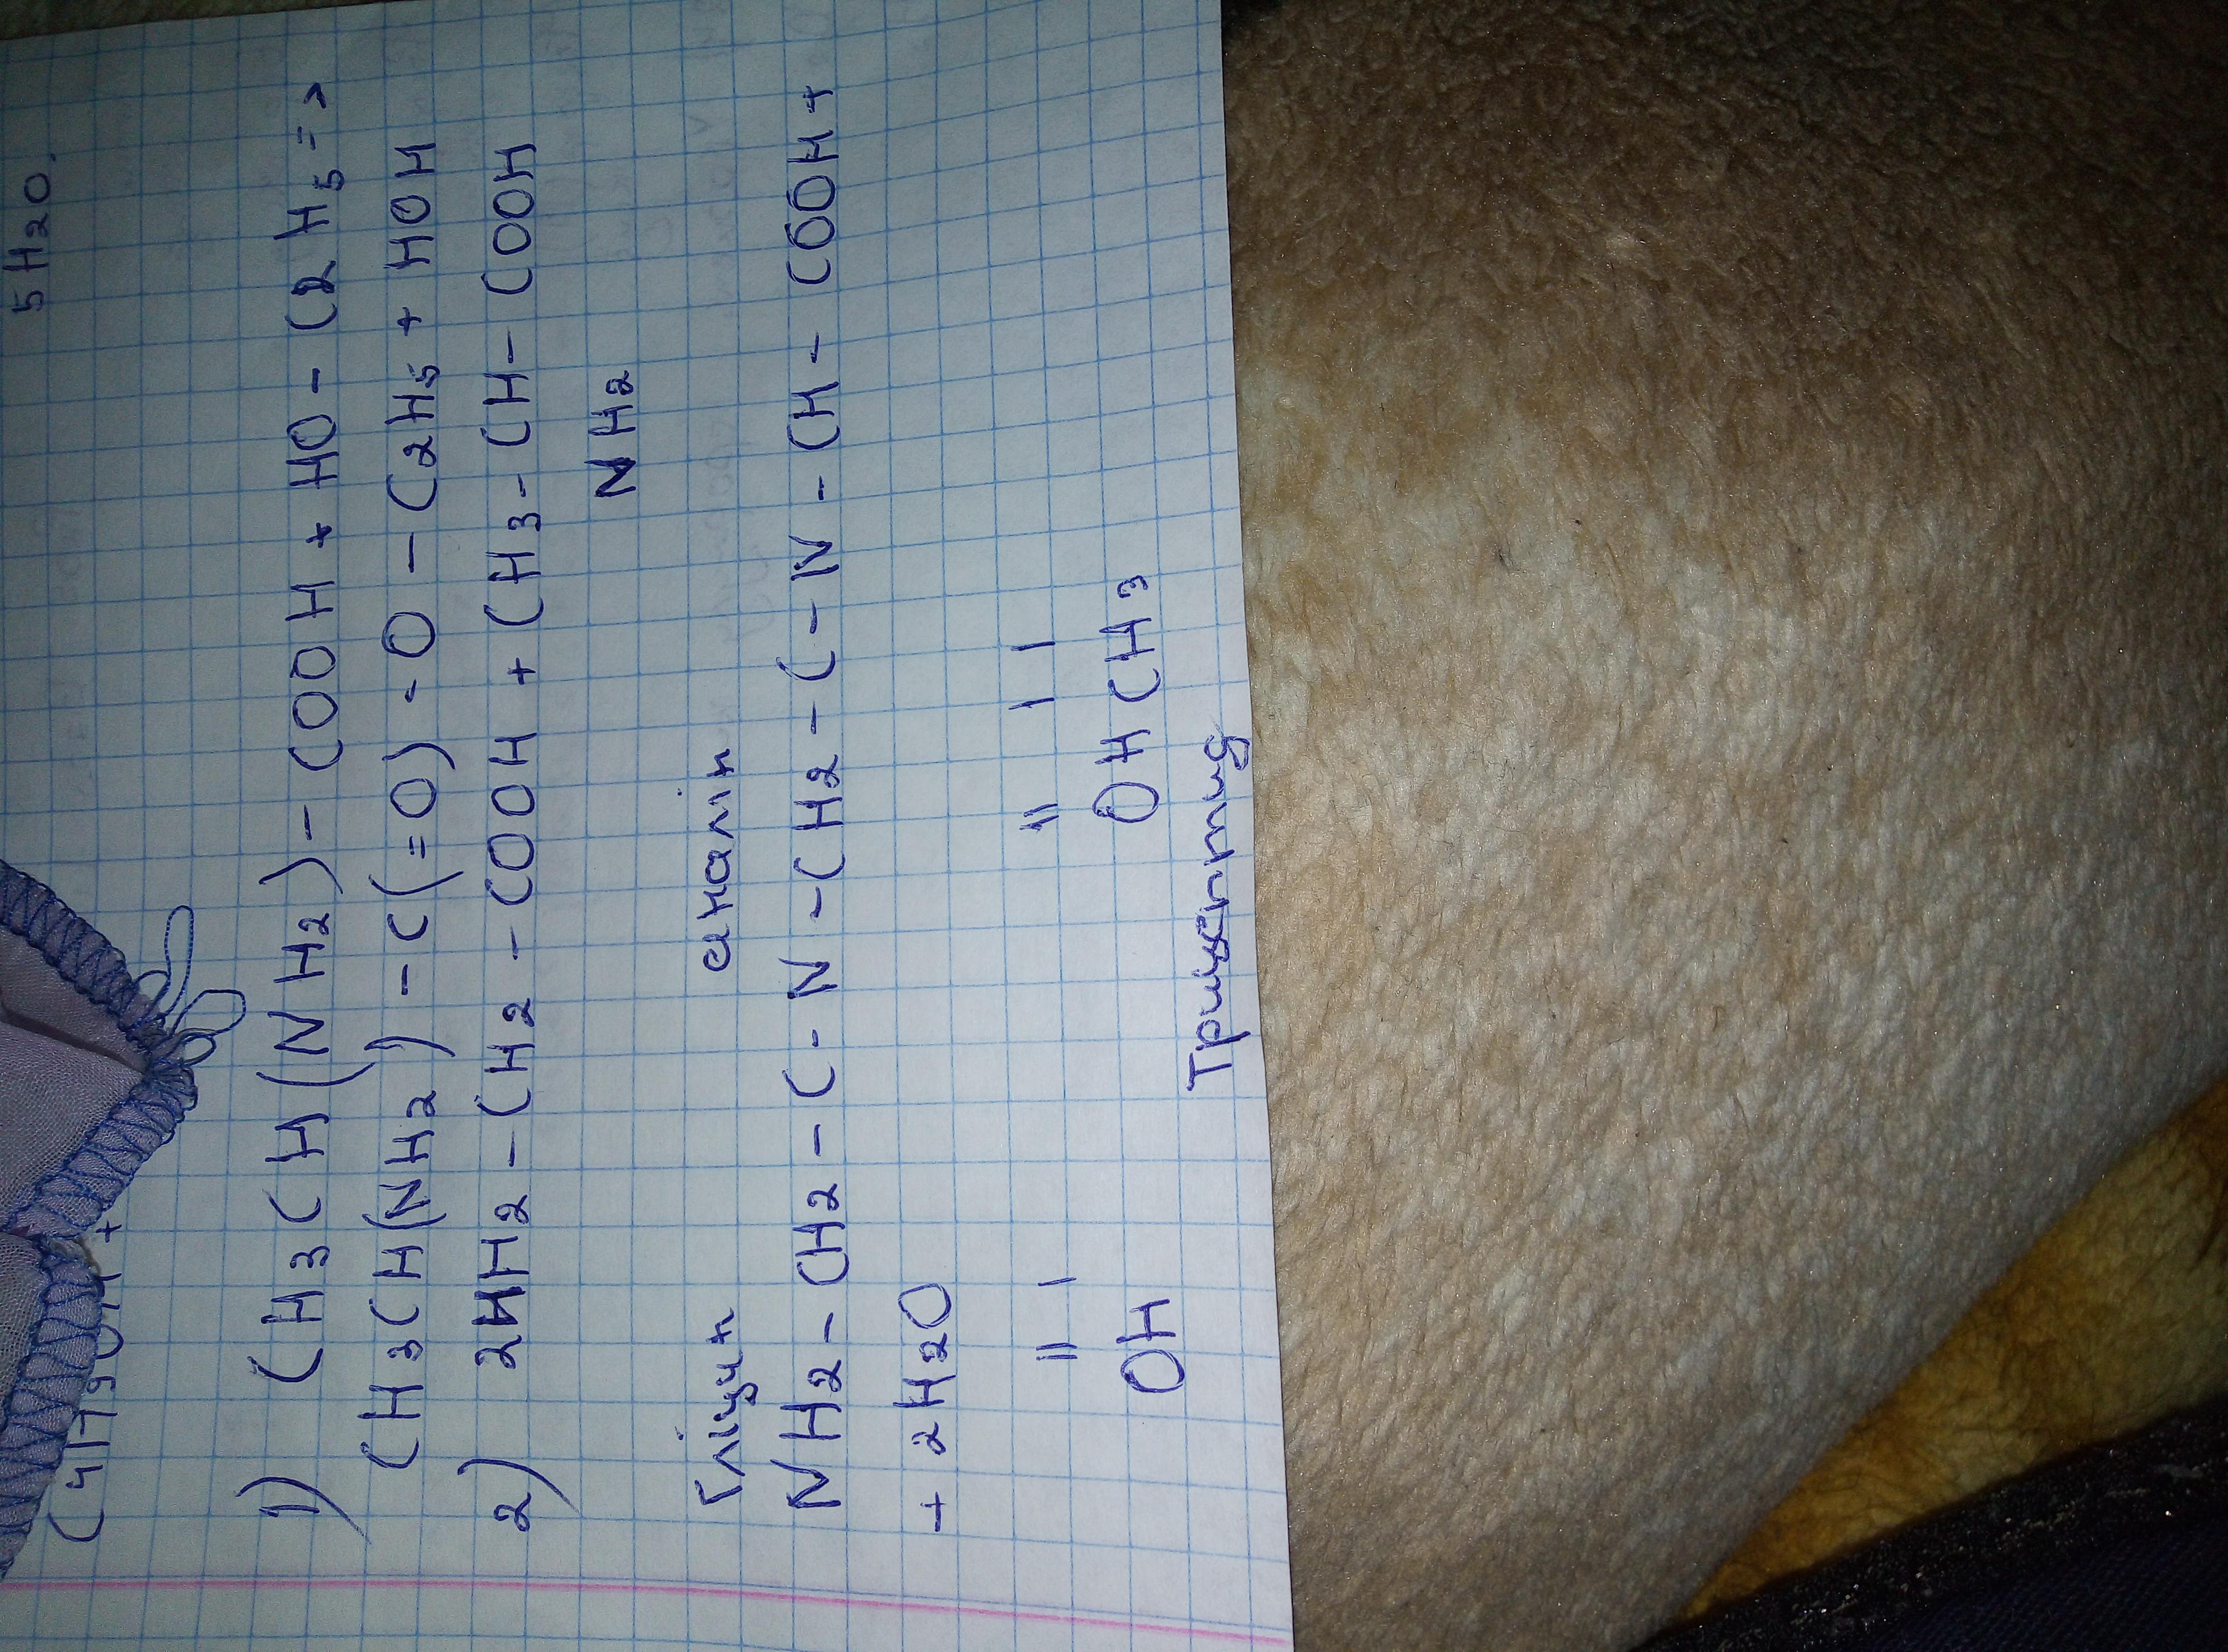 5H2O.
+
1) CH3CH(NH2)-COOH + HO-C2H5=>
CH3CH(NH2)-C(=O)-O-C2H5 + HOH
2) 2NH2-CH2-COOH + CH3-CH-COOH
NH2
Гліцин аналін
NH2-CH2-C-N-CH2-C-N-CH-COOH+
+ 2H2O
|| | || | |
OH OH CH3
Трипептид